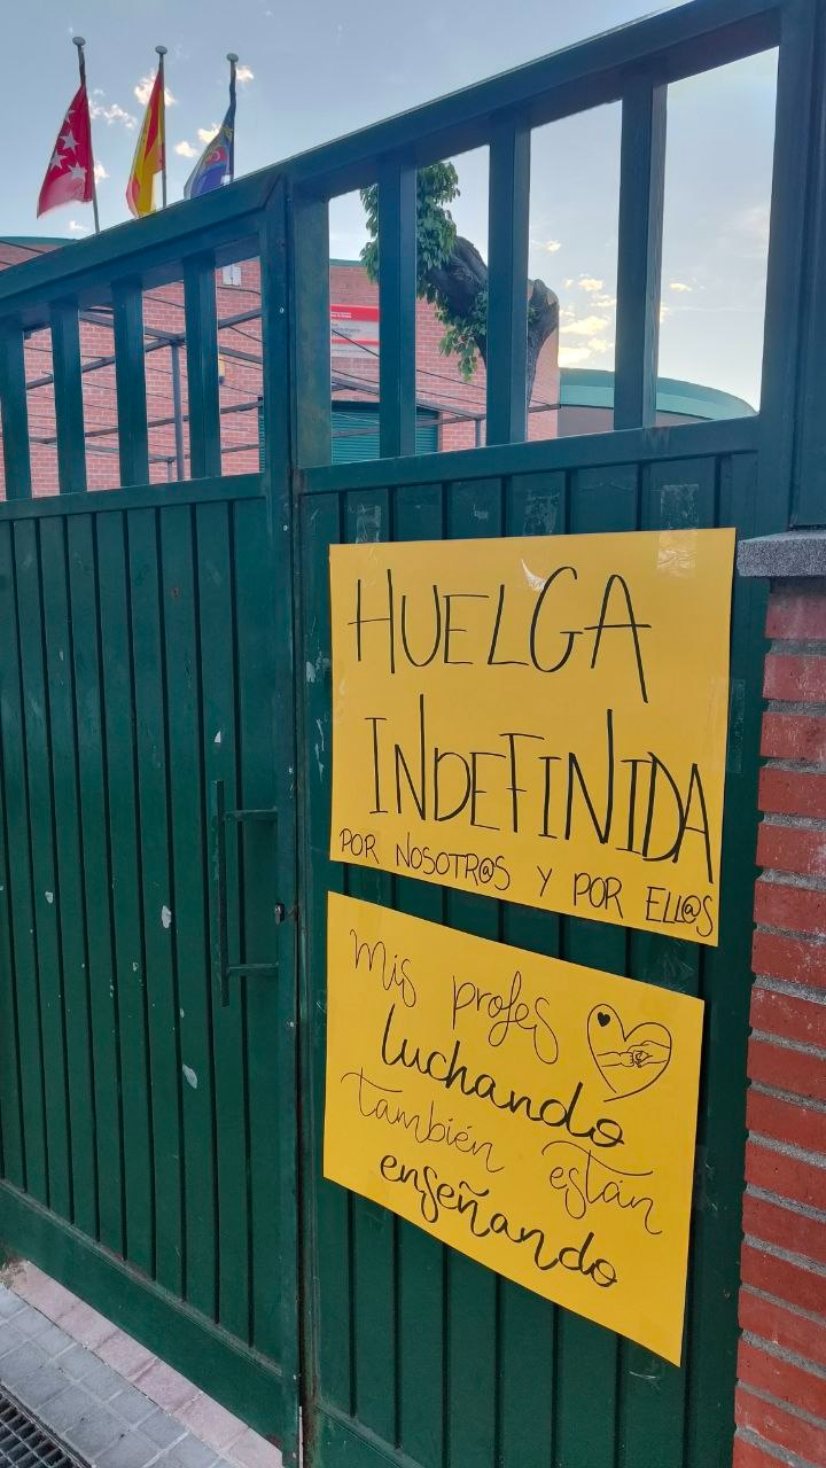 HUELGA
INDEFINIDA
POR NOSOTR@S Y POR ELL@S
Mis profes
luchando
también están
enseñando